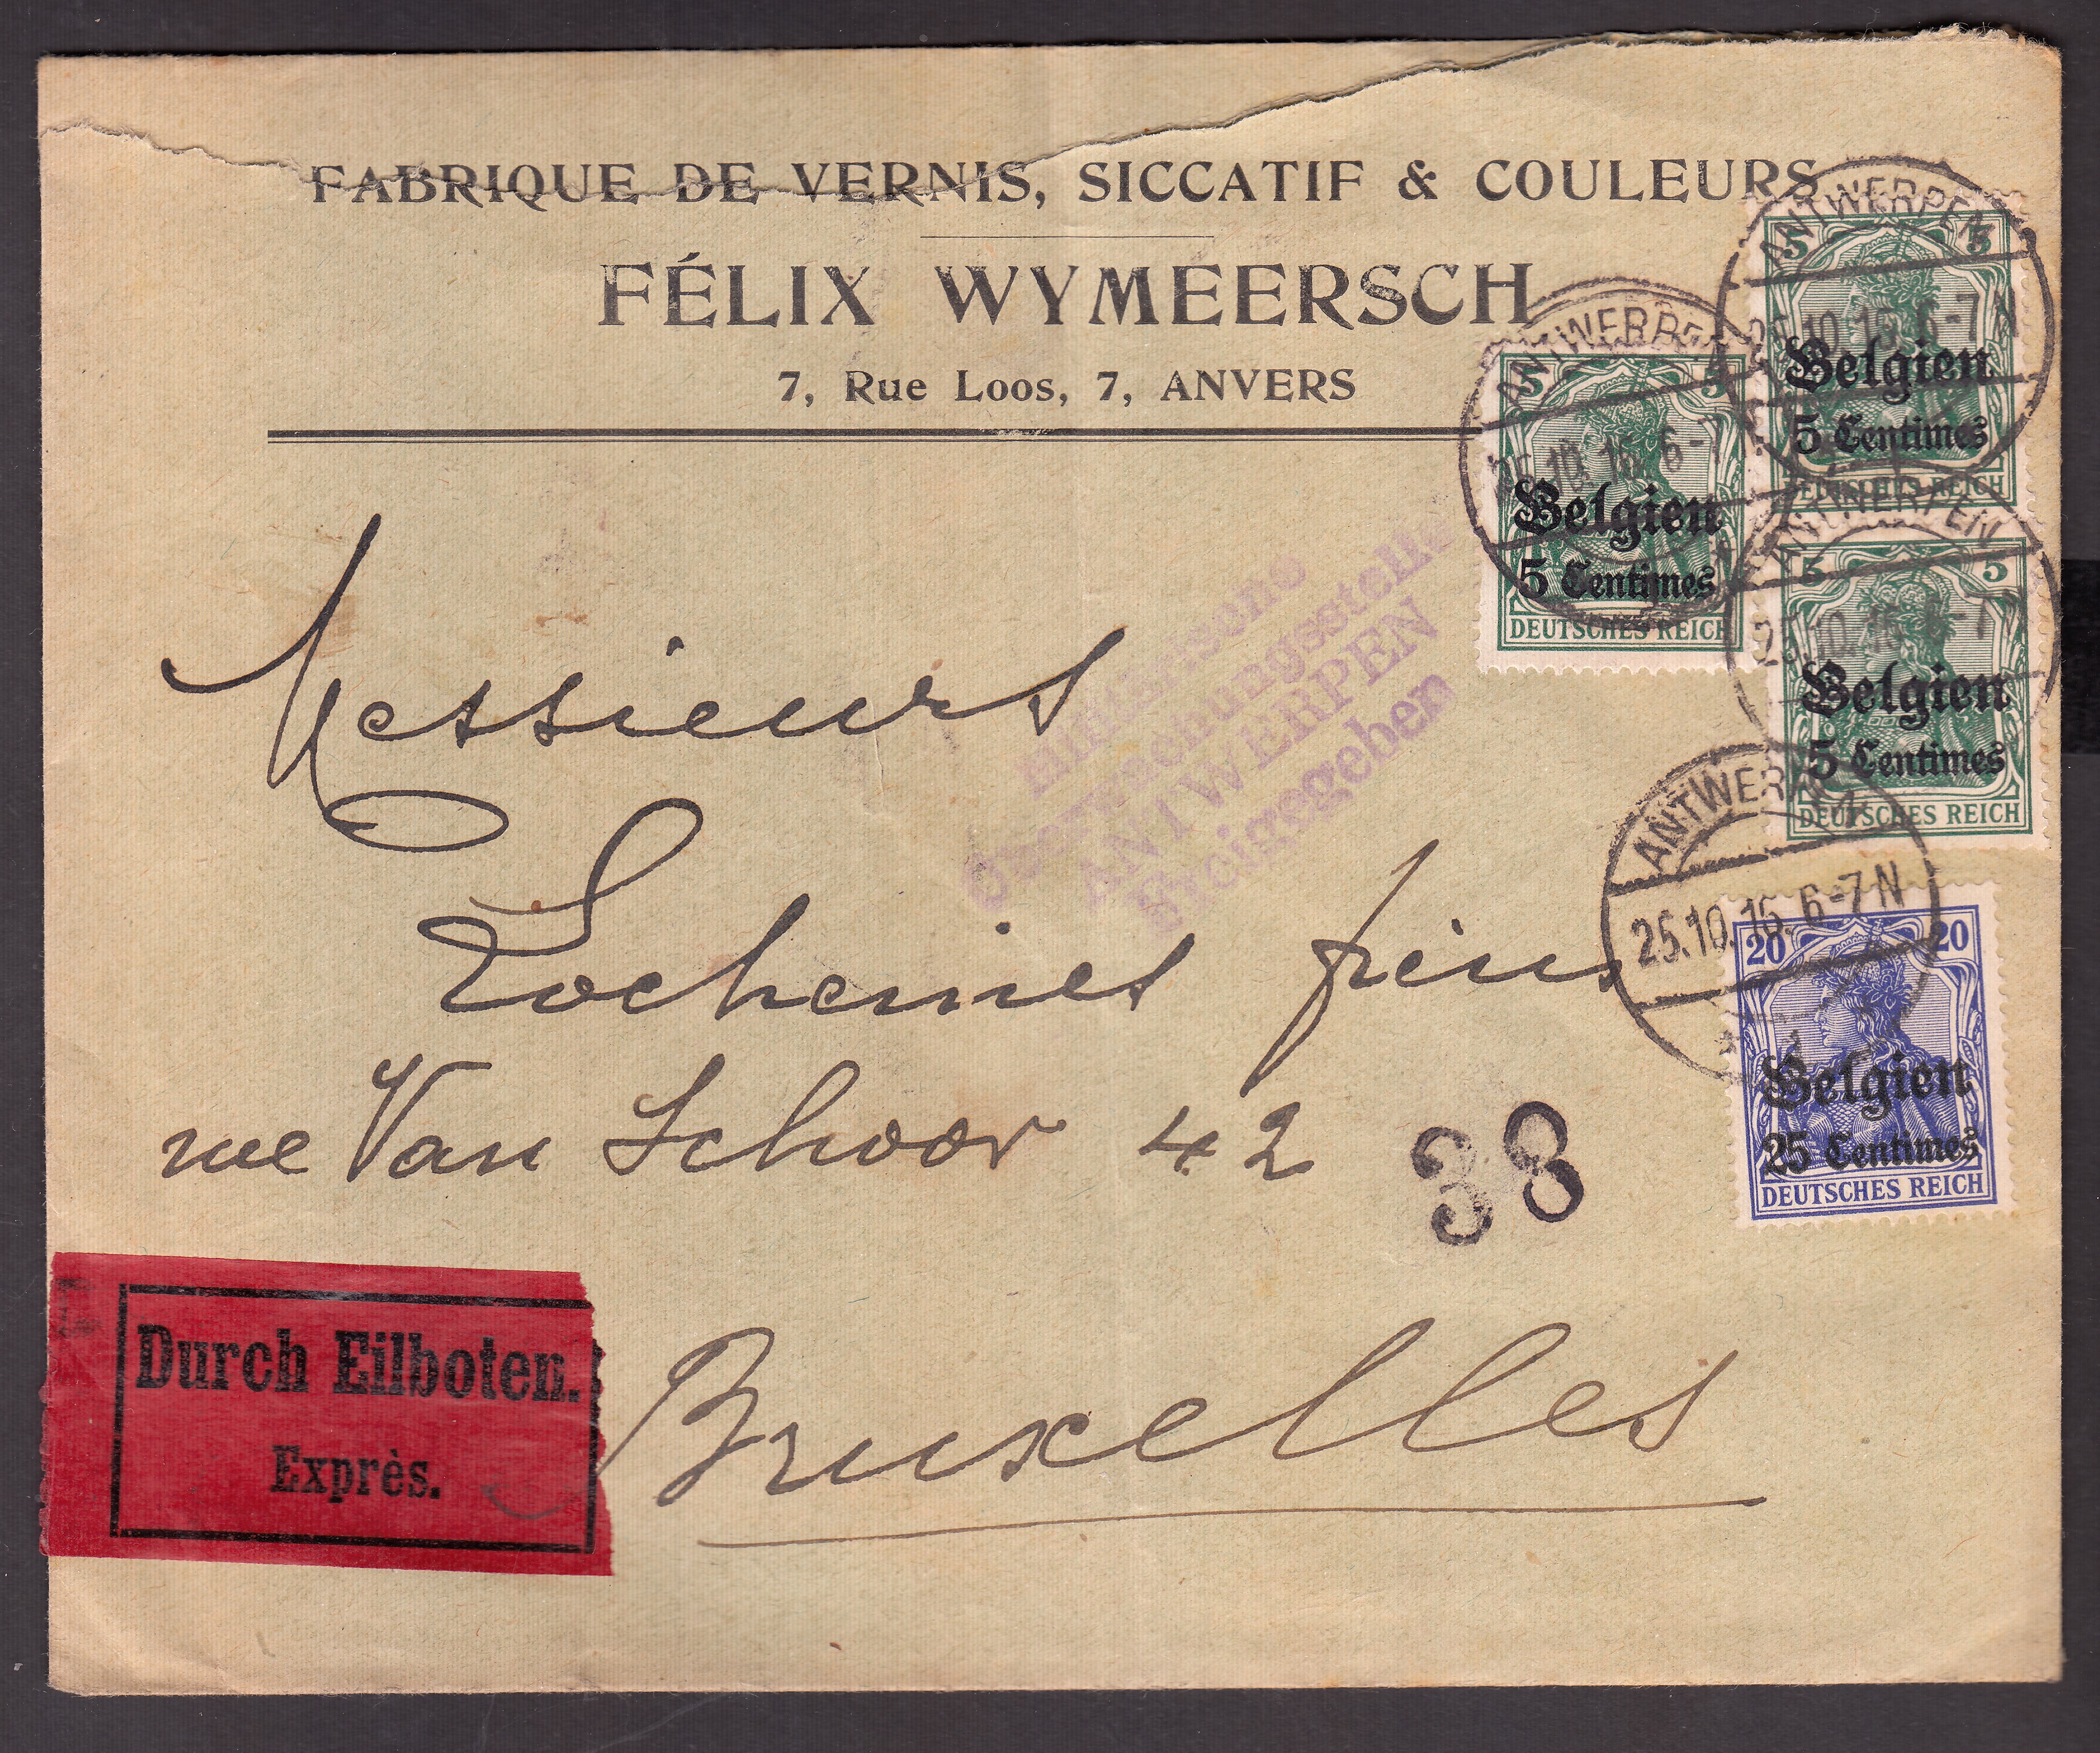 FABRIQUE DE VERNIS, SICCATIF & COULEURS
FÉLIX WYMEERSCH
7, Rue Loos, 7, ANVERS
ANTWERPEN
25.10.15. 6-7N
5 5
Belgien
5 Centimes
DEUTSCHES REICH
ANTWERPEN
25.10.15. 6-7
5 5
Belgien
5 Centimes
DEUTSCHES REICH
ANTWERPEN
25.10.15. 6-7N
5 5
Belgien
5 Centimes
DEUTSCHES REICH
ANTWERPEN
25.10.15. 6-7N
20 20
Belgien
25 Centimes
DEUTSCHES REICH
Militärische
Überwachungsstelle
ANTWERPEN
Freigegeben
Messieurs
frères
rue Van Schoor 42
38
Bruxelles
Durch Eilboten.
Exprès.